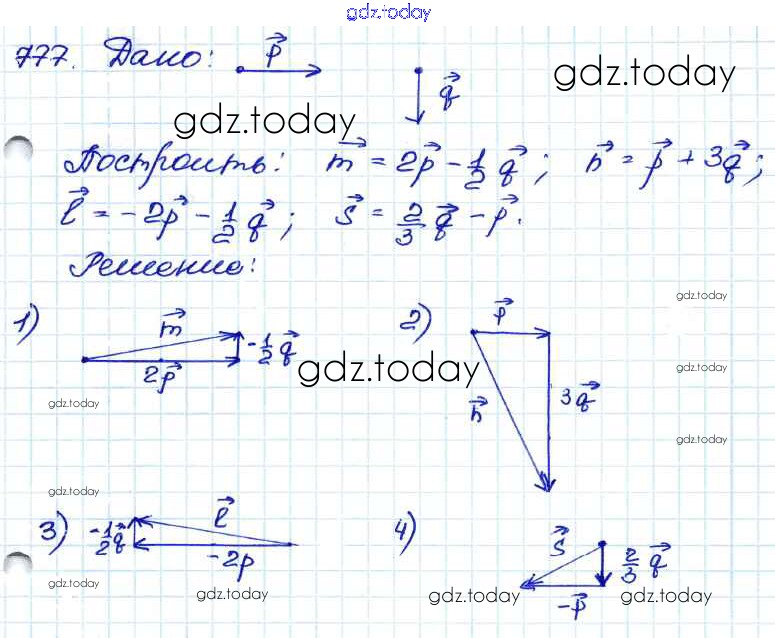 gdz.today
777. Дано: p⃗ q⃗
gdz.today
gdz.today
Построить: m⃗ = 2p⃗ - 1/2 q⃗; n⃗ = p⃗ + 3q⃗;
l⃗ = -2p⃗ - 1/2 q⃗; s⃗ = 2/3 q⃗ - p⃗.
Решение:
1) m⃗ -1/2 q⃗ 2p⃗
2) p⃗ 3q⃗ n⃗
gdz.today
gdz.today
gdz.today
gdz.today
gdz.today
gdz.today
3) -1/2 q⃗ l⃗ -2p
4) s⃗ 2/3 q⃗ -p⃗
gdz.today
gdz.today
gdz.today
gdz.today